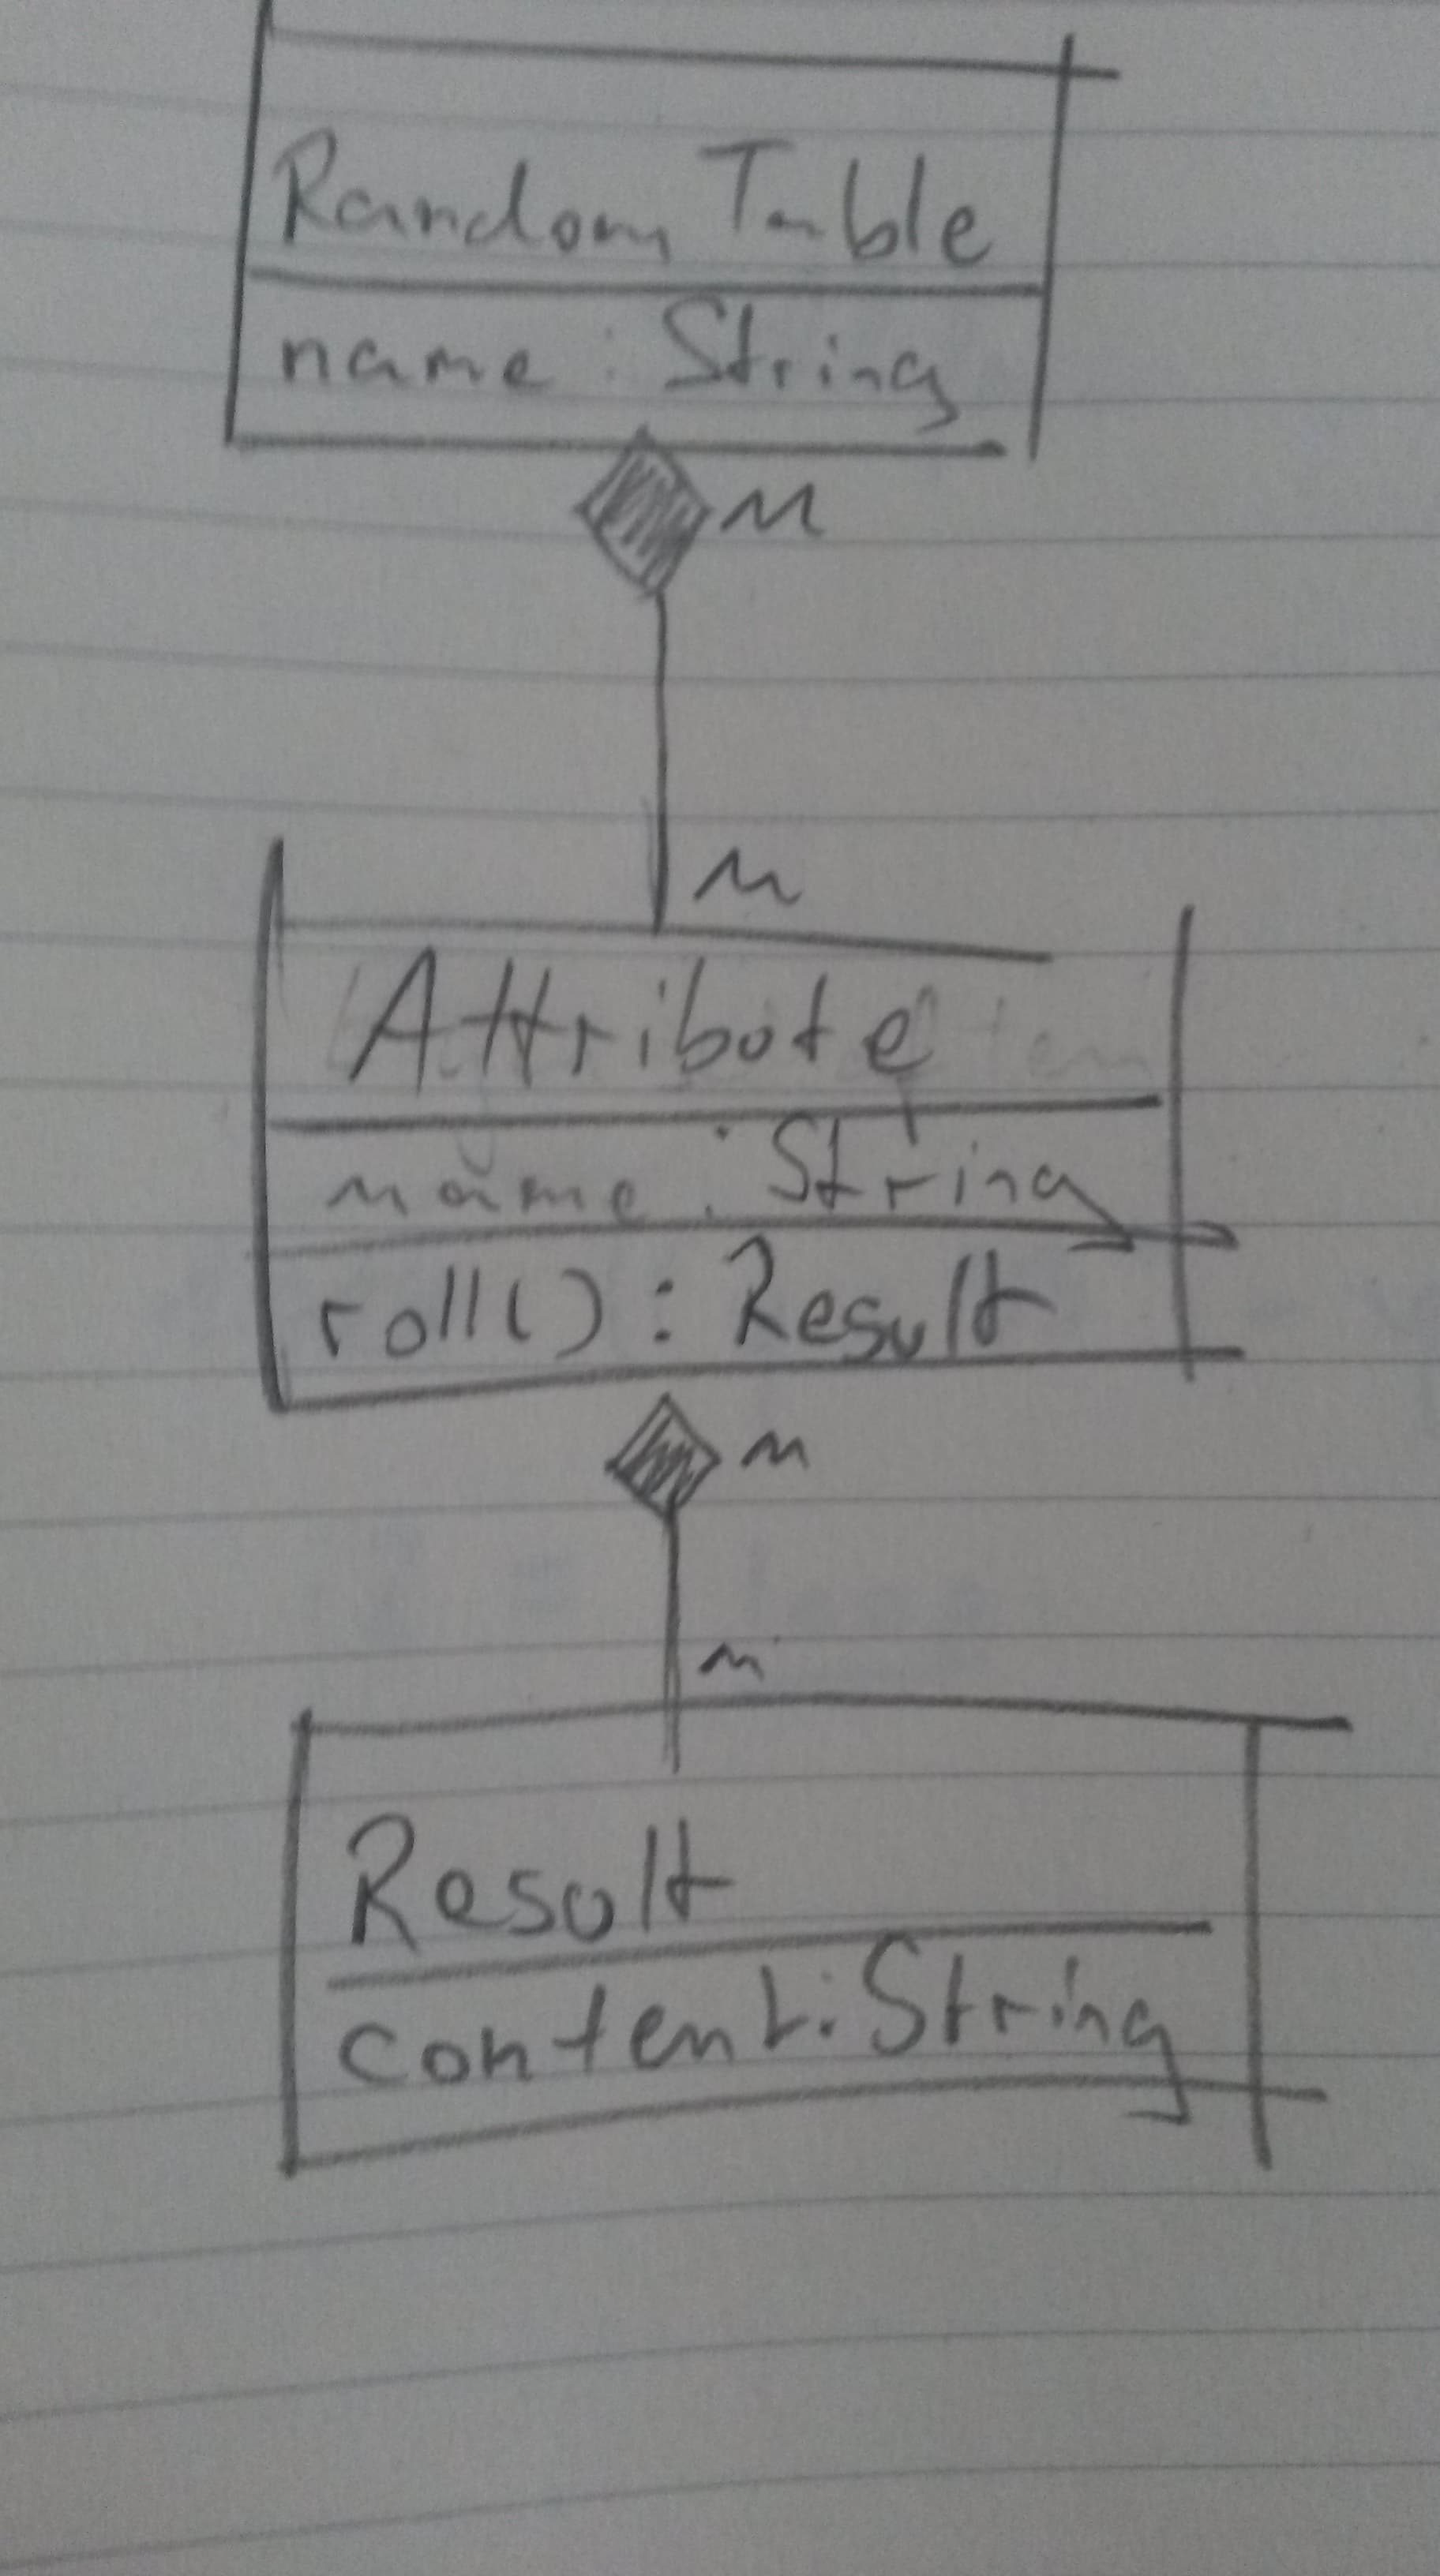 Random Table
name : String
n
n
Attribute
name : String
roll() : Result
n
n
Result
content : String